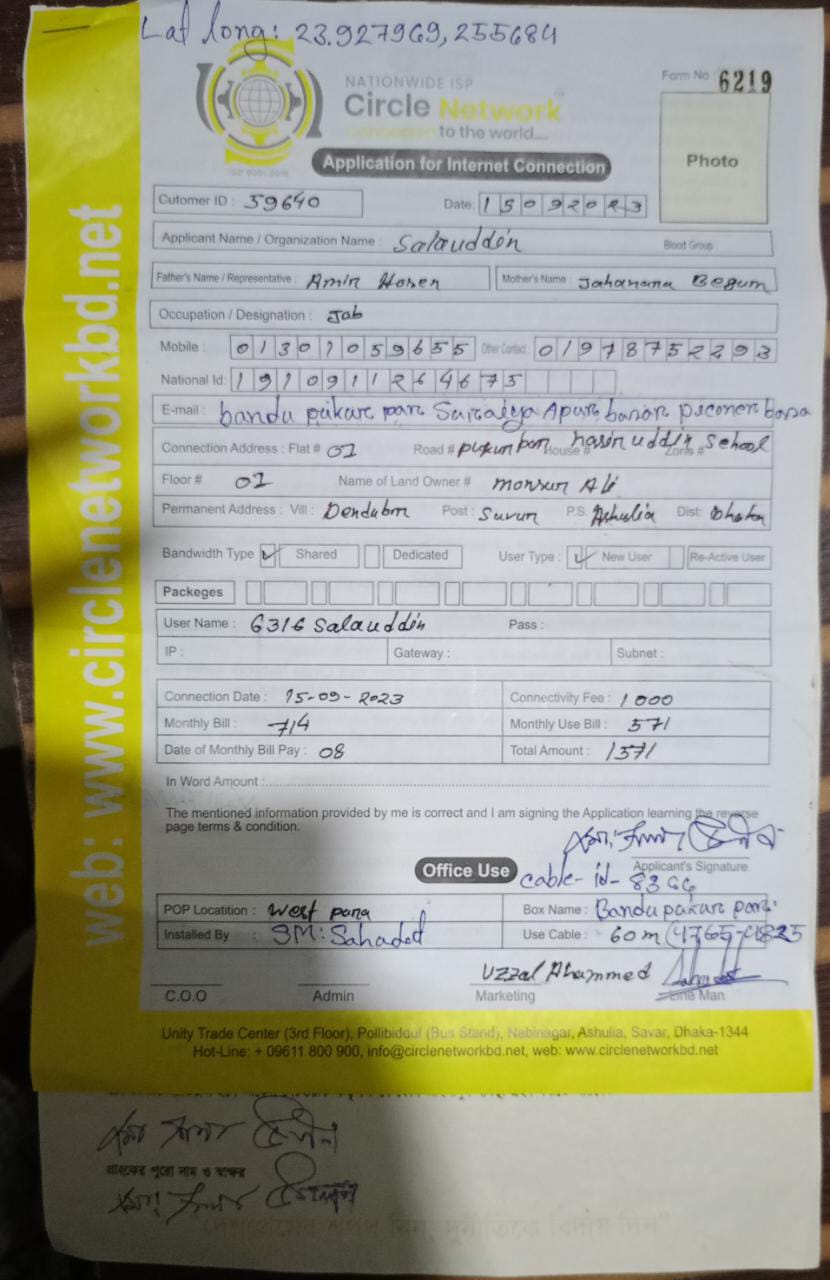 Lat long: 23.927969, 255684
NATIONWIDE ISP
Circle Network
Connection to the world....
ISO 9001:2015
Form No 6219
Application for Internet Connection
Photo
Cutomer ID : 59640
Date: 15092023
Applicant Name / Organization Name : Salauddin
Blood Group
Father's Name / Representative : Amin Hosen
Mother's Name : Jahanara Begum
Occupation / Designation : Job
Mobile : 01301059655 Other Contact : 01978752293
National Id: 1910911264675
E-mail : bandu pukur par
Connection Address : Flat # 01 Road # pukur par House # hasir uddin school Zone #
Floor # 01 Name of Land Owner # monsur Ali
Permanent Address : Vill : Dendabor Post : Savar P.S. Ashulia Dist: Dhaka
Bandwidth Type Shared Dedicated User Type : New User Re-Active User
Packeges
User Name : 6316 Salauddin Pass :
IP : Gateway : Subnet :
Connection Date : 15-09-2023 Connectivity Fee : 1000
Monthly Bill : 714 Monthly Use Bill : 571
Date of Monthly Bill Pay : 08 Total Amount : 1571
In Word Amount :
The mentioned information provided by me is correct and I am signing the Application learning the reverse
page terms & condition.
Applicant's Signature
Office Use
cable-id-8366
POP Locatition : West para Box Name : Bandu pukur par
Installed By : SM: Sahadat Use Cable : 60m (4765-4825
Uzzal Ahammed
C.O.O Admin Marketing Line Man
Unity Trade Center (3rd Floor), Pollibiddut (Bus Stand), Nabinagar, Ashulia, Savar, Dhaka-1344
Hot-Line: + 09611 800 900, info@circlenetworkbd.net, web: www.circlenetworkbd.net
web: www.circlenetworkbd.net
গ্রাহকের পুরো নাম ও স্বাক্ষর